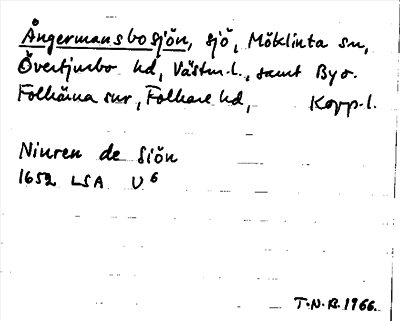 Ångermansbosjön, sjö, Möklinta sn,
Övertjurbo hd, Västm.l., samt By o.
Folkärna snr, Folkare hd, Kopp.l.
Ninren de Siön
1652 LSA U6
T.N.B. 1966.